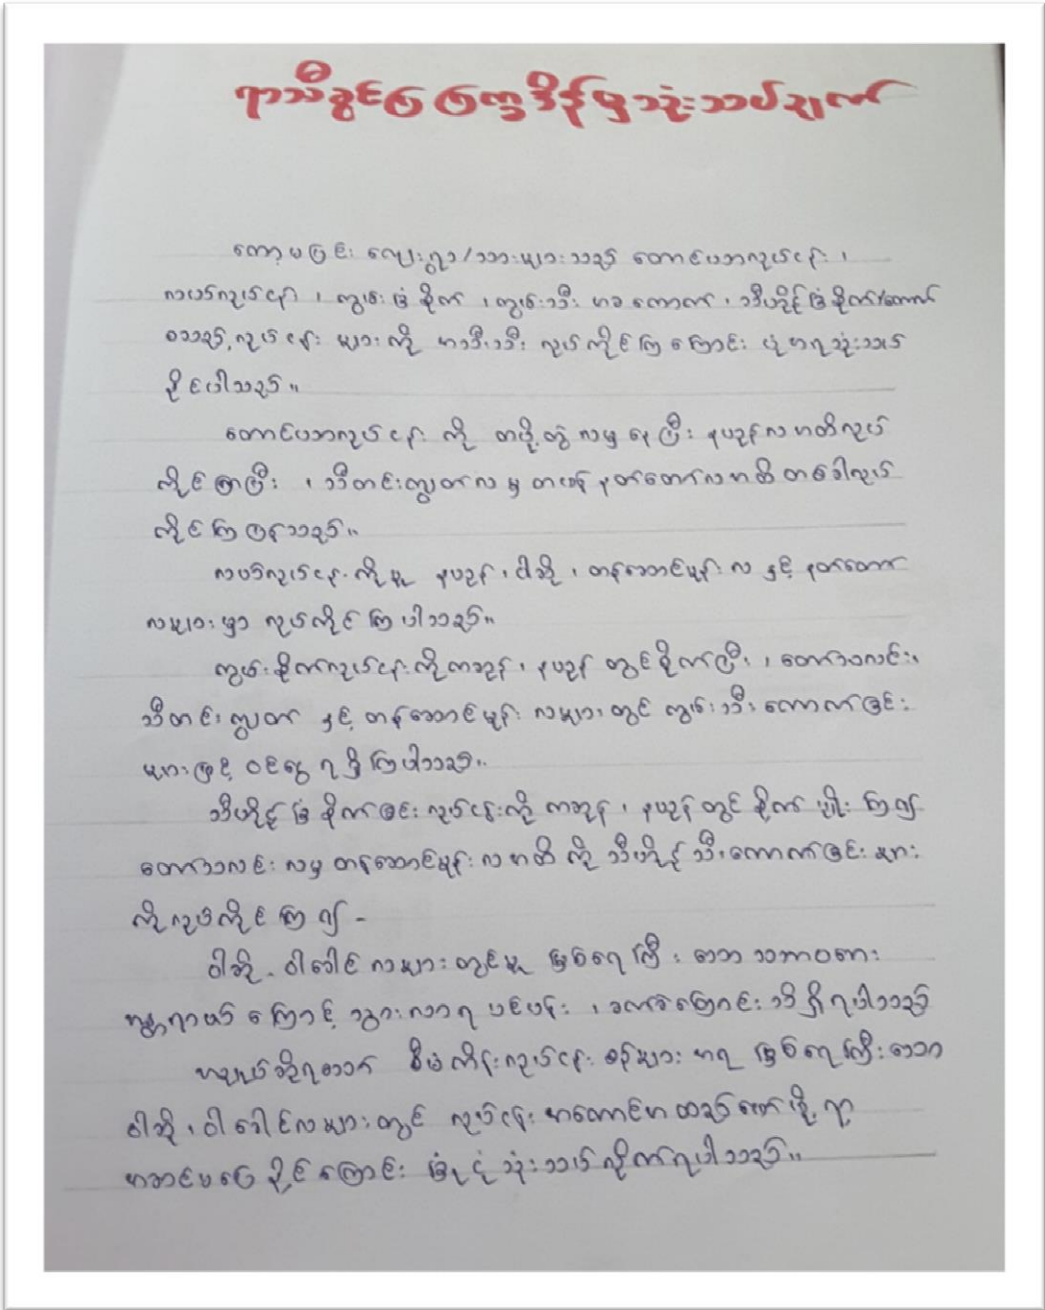 ရာသီခွင်ပြ ပြက္ခဒိန်မှသုံးသပ်ချက်
တော့မပြင်း ကျေးရွာ/သားများသည် တောင်ယာလုပ်ငန်း ၊
လယ်လုပ်ငန်း ၊ ကွမ်းခြံစိုက် ၊ ကွမ်းသီး ကောက် ၊ သီဟိုဠ်ခြံစိုက်/ကောက်
စသည့် လုပ်ငန်း များ ကို လုပ်ကိုင်ကြကြောင်း သုံးသပ်
နိုင်ပါသည်။
တောင်ယာလုပ်ငန်း ကို တပို့တွဲ လမှ နေပြီး နယုန်လ အထိလုပ်
ကိုင်ကြပြီး ၊ သီတင်းကျွတ်လ မှ တဖန် နတ်တော်လအထိ တစ်ခါလုပ်
ကိုင်ကြ ပြန်သည်။
လယ်လုပ်ငန်းကိုမူ နယုန် ၊ ဝါဆို ၊ တန်ဆောင်မုန်း လ နှင့် နတ်တော်
လများ မှာ လုပ်ကိုင်ကြပါသည်။
ကွမ်းစိုက်လုပ်ငန်းကိုကဆုန် ၊ နယုန် တွင်စိုက်ပြီး ၊ တော်သလင်း၊
သီတင်းကျွတ် နှင့် တန်ဆောင်မုန်း လများ တွင် ကွမ်းသီးကောက်ခြင်း
များဖြင့် ဝင်ငွေ ရရှိကြပါသည်။
သီဟိုဠ်ခြံ စိုက်ခြင်း လုပ်ငန်းကို ကဆုန် ၊ နယုန် တွင် စိုက်ပျိုး ကြ၍
တော်သလင်း လမှ တန်ဆောင်မုန်း လ အထိ ကို သီဟိုဠ် သီးကောက်ခြင်း များ
ကိုလုပ်ကိုင်ကြ၍ -
ဝါဆို - ဝါခေါင် လများ တွင်မူ မြစ်ရေကြီး သော သဘာဝဘေး
အန္တရာယ် ကြောင့် သွားလာရ ပင်ပန်း ၊ ခက်ခဲကြောင်း သိရှိရပါသည်
အမျှယ်ဆိုရသော် စီမံကိန်းလုပ်ငန်းစဉ်များအရ မြစ်ရေကြီးသော
ဝါဆို ၊ ဝါခေါင်လများ တွင် လုပ်ငန်း အကောင်အထည်ဖော်ဖို့ရာ
အဆင်မပြေနိုင်ကြောင်း ခြုံငုံ သုံးသပ်လိုက်ရပါသည်။